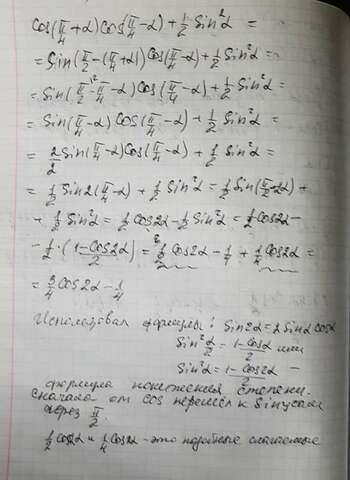 cos(π/4+α)cos(π/4-α)+1/2 sin²α =
= sin(π/2-(π/4+α))cos(π/4-α)+1/2 sin²α =
= sin(π/2-π/4-α)cos(π/4-α)+1/2 sin²α =
= sin(π/4-α)cos(π/4-α)+1/2 sin²α =
= 2/2 sin(π/4-α)cos(π/4-α)+1/2 sin²α =
= 1/2 sin2(π/4-α)+1/2 sin²α = 1/2 sin(π/2-2α)+
+ 1/2 sin²α = 1/2 cos2α-1/2 sin²α = 1/2 cos2α-
- 1/2·(1-cos2α/2) = 1/2 cos2α-1/4+1/4 cos2α =
= 3/4 cos2α-1/4
Использовал формулы: sin2α=2sinα cosα
sin²α/2 = 1-cosα/2 или
sin²α = 1-cos2α/2 -
формула понижения степени.
сначала от cos перешёл к sinусам
через π/2.
1/2 cos2α и 1/4 cos2α - это подобные слагаемые